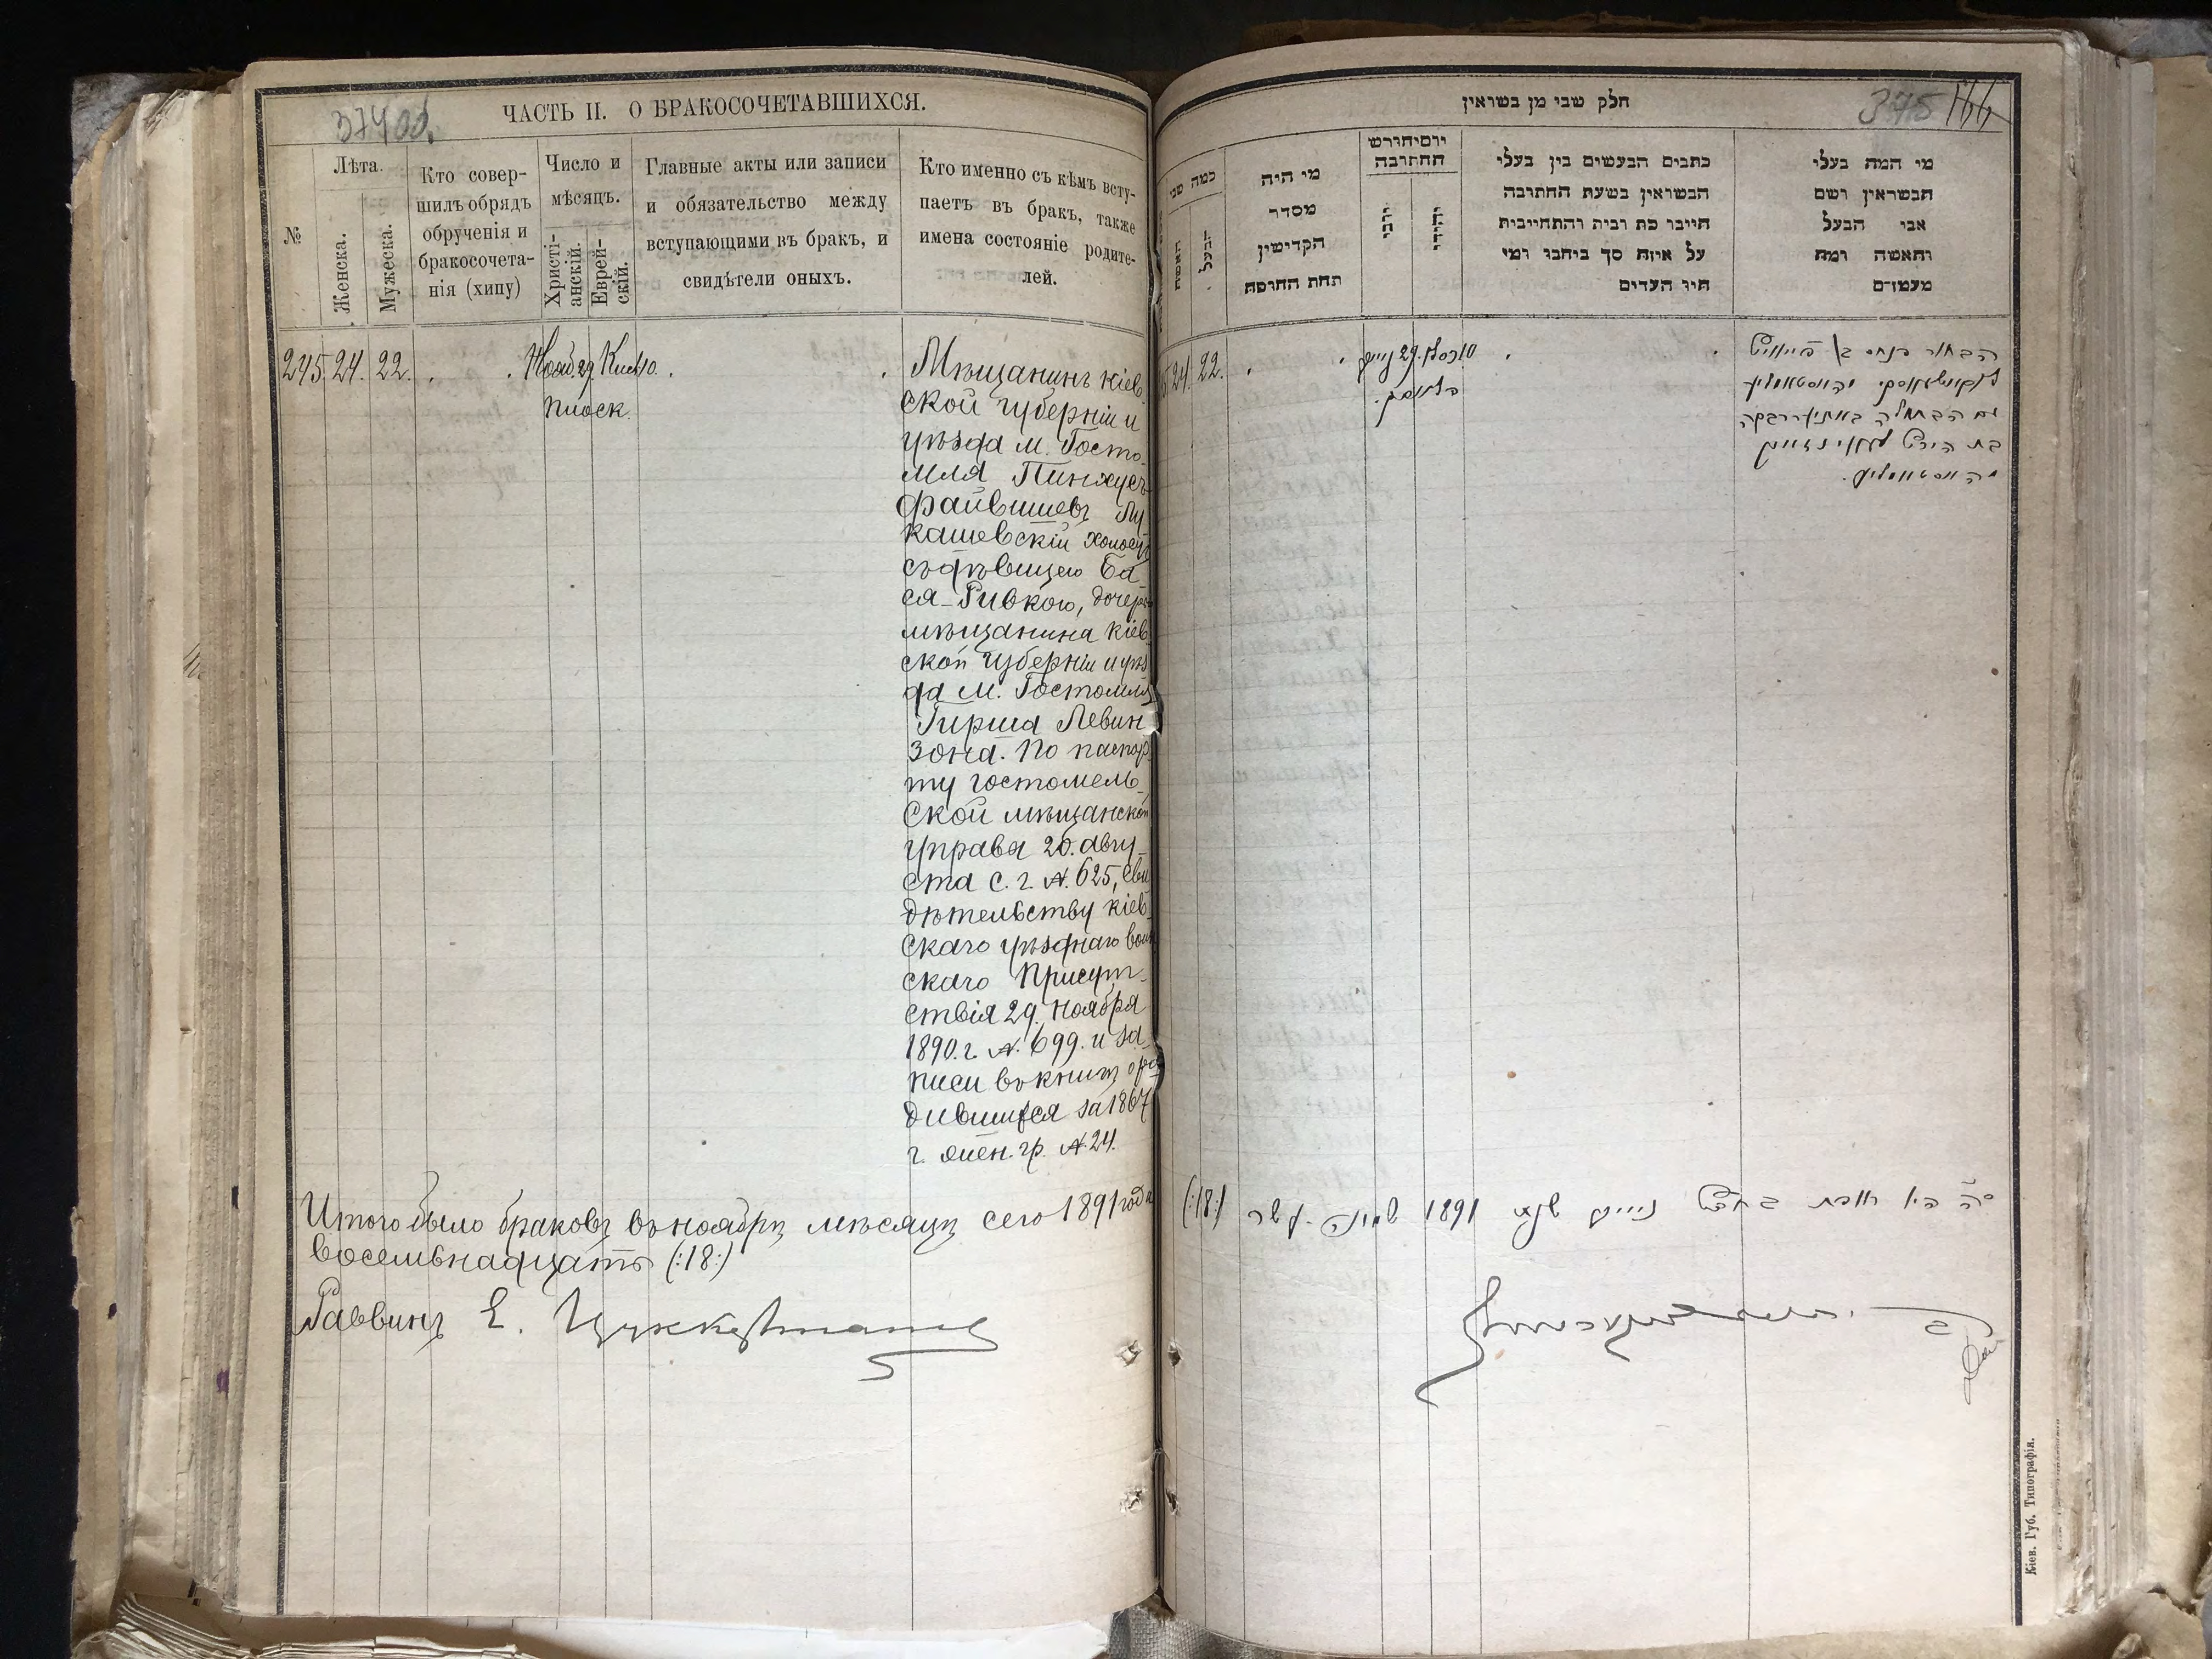 ЧАСТЬ II. О БРАКОСОЧЕТАВШИХСЯ.
№
Лѣта.
Женска.
Мужеска.
Кто совер-
шилъ обрядъ
обрученія и
бракосочета-
нія (хипу)
Число и
мѣсяцъ.
Христі-
анскій.
Еврей-
скій.
Главные акты или записи
и обязательство между
вступающими въ бракъ, и
свидѣтели оныхъ.
Кто именно съ кѣмъ всту-
паетъ въ бракъ, также
имена состояніе родите-
лей.
245. 24. 22. Нояб. 29. Кисл. 10.
Мѣщанинъ кіев-
ской губерніи и
уѣзда м. Госто-
мля Пинхусъ
Файвишевъ Лу-
кашевскій холост
съ дѣвицею Ба-
ся-Ривкою, дочерью
мѣщанина кіев-
ской губерніи и уѣз
да м. Гостомля
Гирша Левин
зона. По паспор
ту гостомель-
ской мѣщанской
управы 20. авгу-
ста с. г. №. 625, сви
дѣтельству кіев-
скаго уѣзднаго воин
скаго Присут-
ствія 29. ноября
1890. г. №. 699. и за-
писи въ книгѣ о ро
дившихся за 1867
г. жен. гр. №24.
Итого было браковъ въ ноябрѣ мѣсяцѣ сего 1891 года
восемьнадцать (:18:)
Раввинъ Е. Цуккерманъ
חלק שני מן נשואין
375 166
כמה שני
האשה
הבעל
מי היה
מסדר
הקדישין
תחת החופה
יום וחודש
החתונה
יהודי
כתבים הנעשים בין בעלי
הנשואין בשעת החתונה
חיובי כת ובית והתחייבית
על איזה סך ביחבו ומי
היו העדים
מי המה בעלי
הנשואין ושם
אבי הבעל
והאשה ומה
מעמדם
24. 22. 29 10
הבחור פנחס ב"ר פייוויש
לוקאשעווסקי מהאסטאמליע
עם הבתולה באסיע-רבקה
בת הירש לעווינזאהן
מהאסטאמליע.
(:18:) 1891
Кіев. Губ. Типографія.